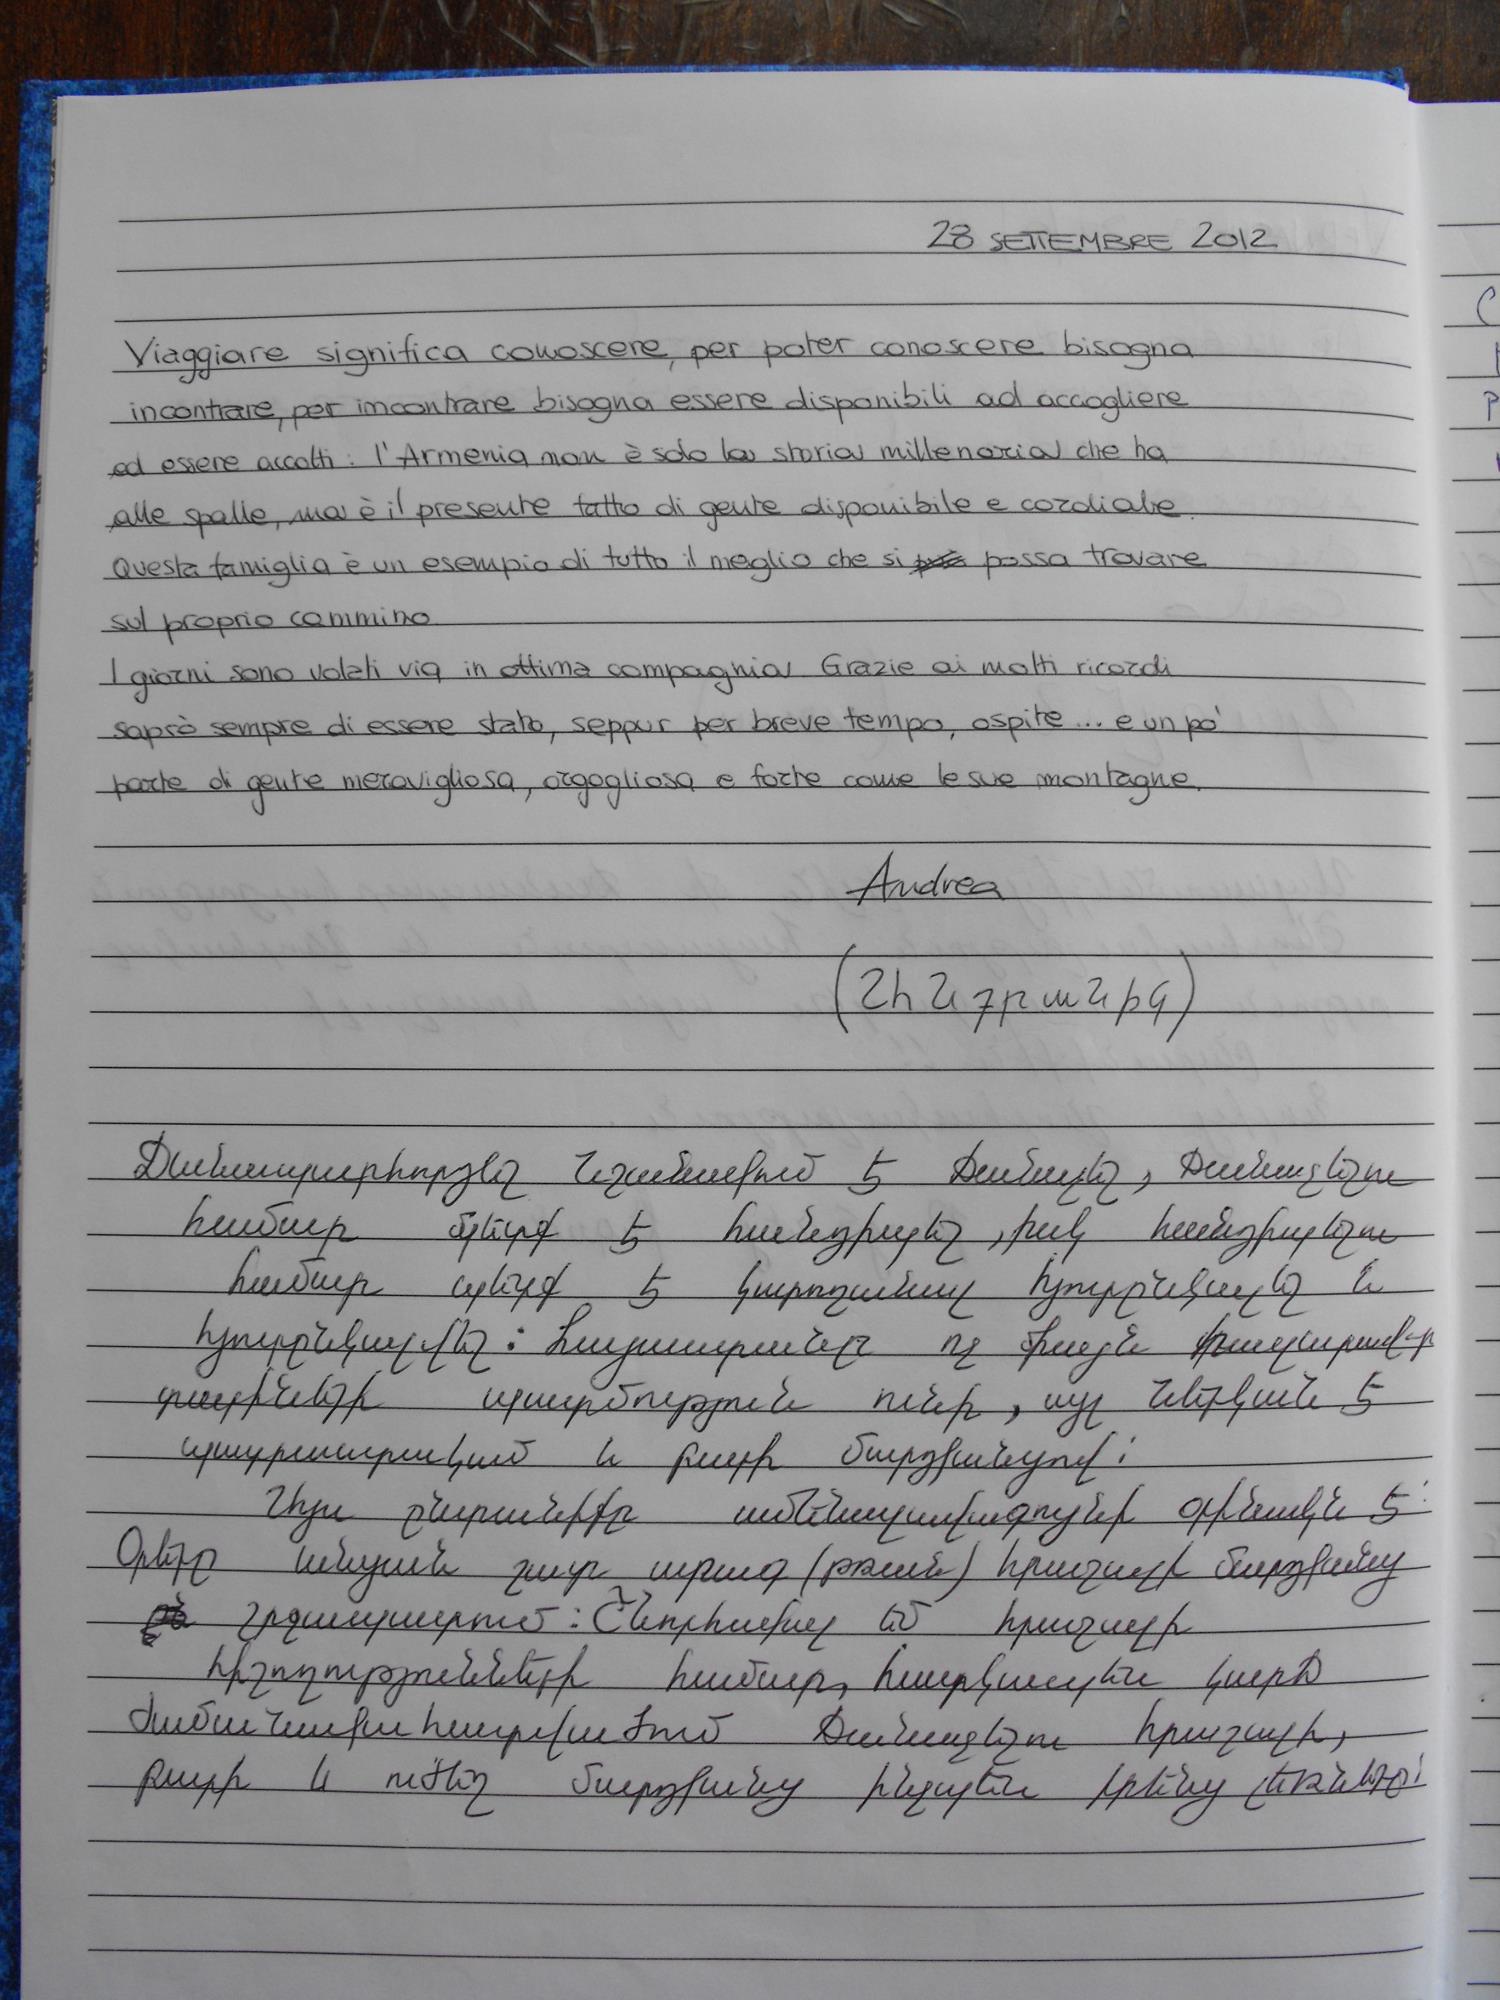 28 SETTEMBRE 2012
Viaggiare significa conoscere, per poter conoscere bisogna
incontrare, per incontrare bisogna essere disponibili ad accogliere
ed essere accolti: l'Armenia non è solo la storia millenaria che ha
alle spalle, ma è il presente fatto di gente disponibile e cordiale.
Questa famiglia è un esempio di tutto il meglio che si possa trovare
sul proprio cammino.
I giorni sono volati via in ottima compagnia. Grazie ai molti ricordi
saprò sempre di essere stato, seppur per breve tempo, ospite... e un po'
parte di gente meravigliosa, orgogliosa e forte come le sue montagne.
Andrea
Ճանապարհորդել նշանակում է ճանաչել, ճանաչելու
համար պետք է հանդիպել, իսկ հանդիպելու
համար պետք է կարողանալ հյուրընկալել և
հյուրընկալվել: Հայաստանը ոչ միայն
պատմություն ունի, այլ ներկան է
պատրաստակամ և բարի մարդկանցով:
Այս ընտանիքը ամենալավագույնի օրինակն է:
Օրերը անցան շատ արագ (թռան) հրաշալի մարդկանց
շրջապատում: Շնորհակալ եմ հրաշալի
հիշողությունների համար, հատկապես կարճ
ժամանակահատվածում ճանաչելու հրաշալի,
բարի և ուժեղ մարդկանց ինչպես իրենց լեռները: